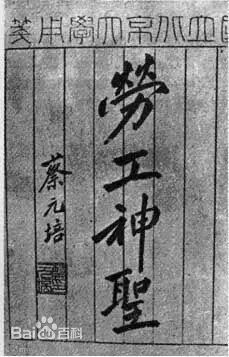 國立北京大學用箋
勞工神聖
蔡元培
Bai百科